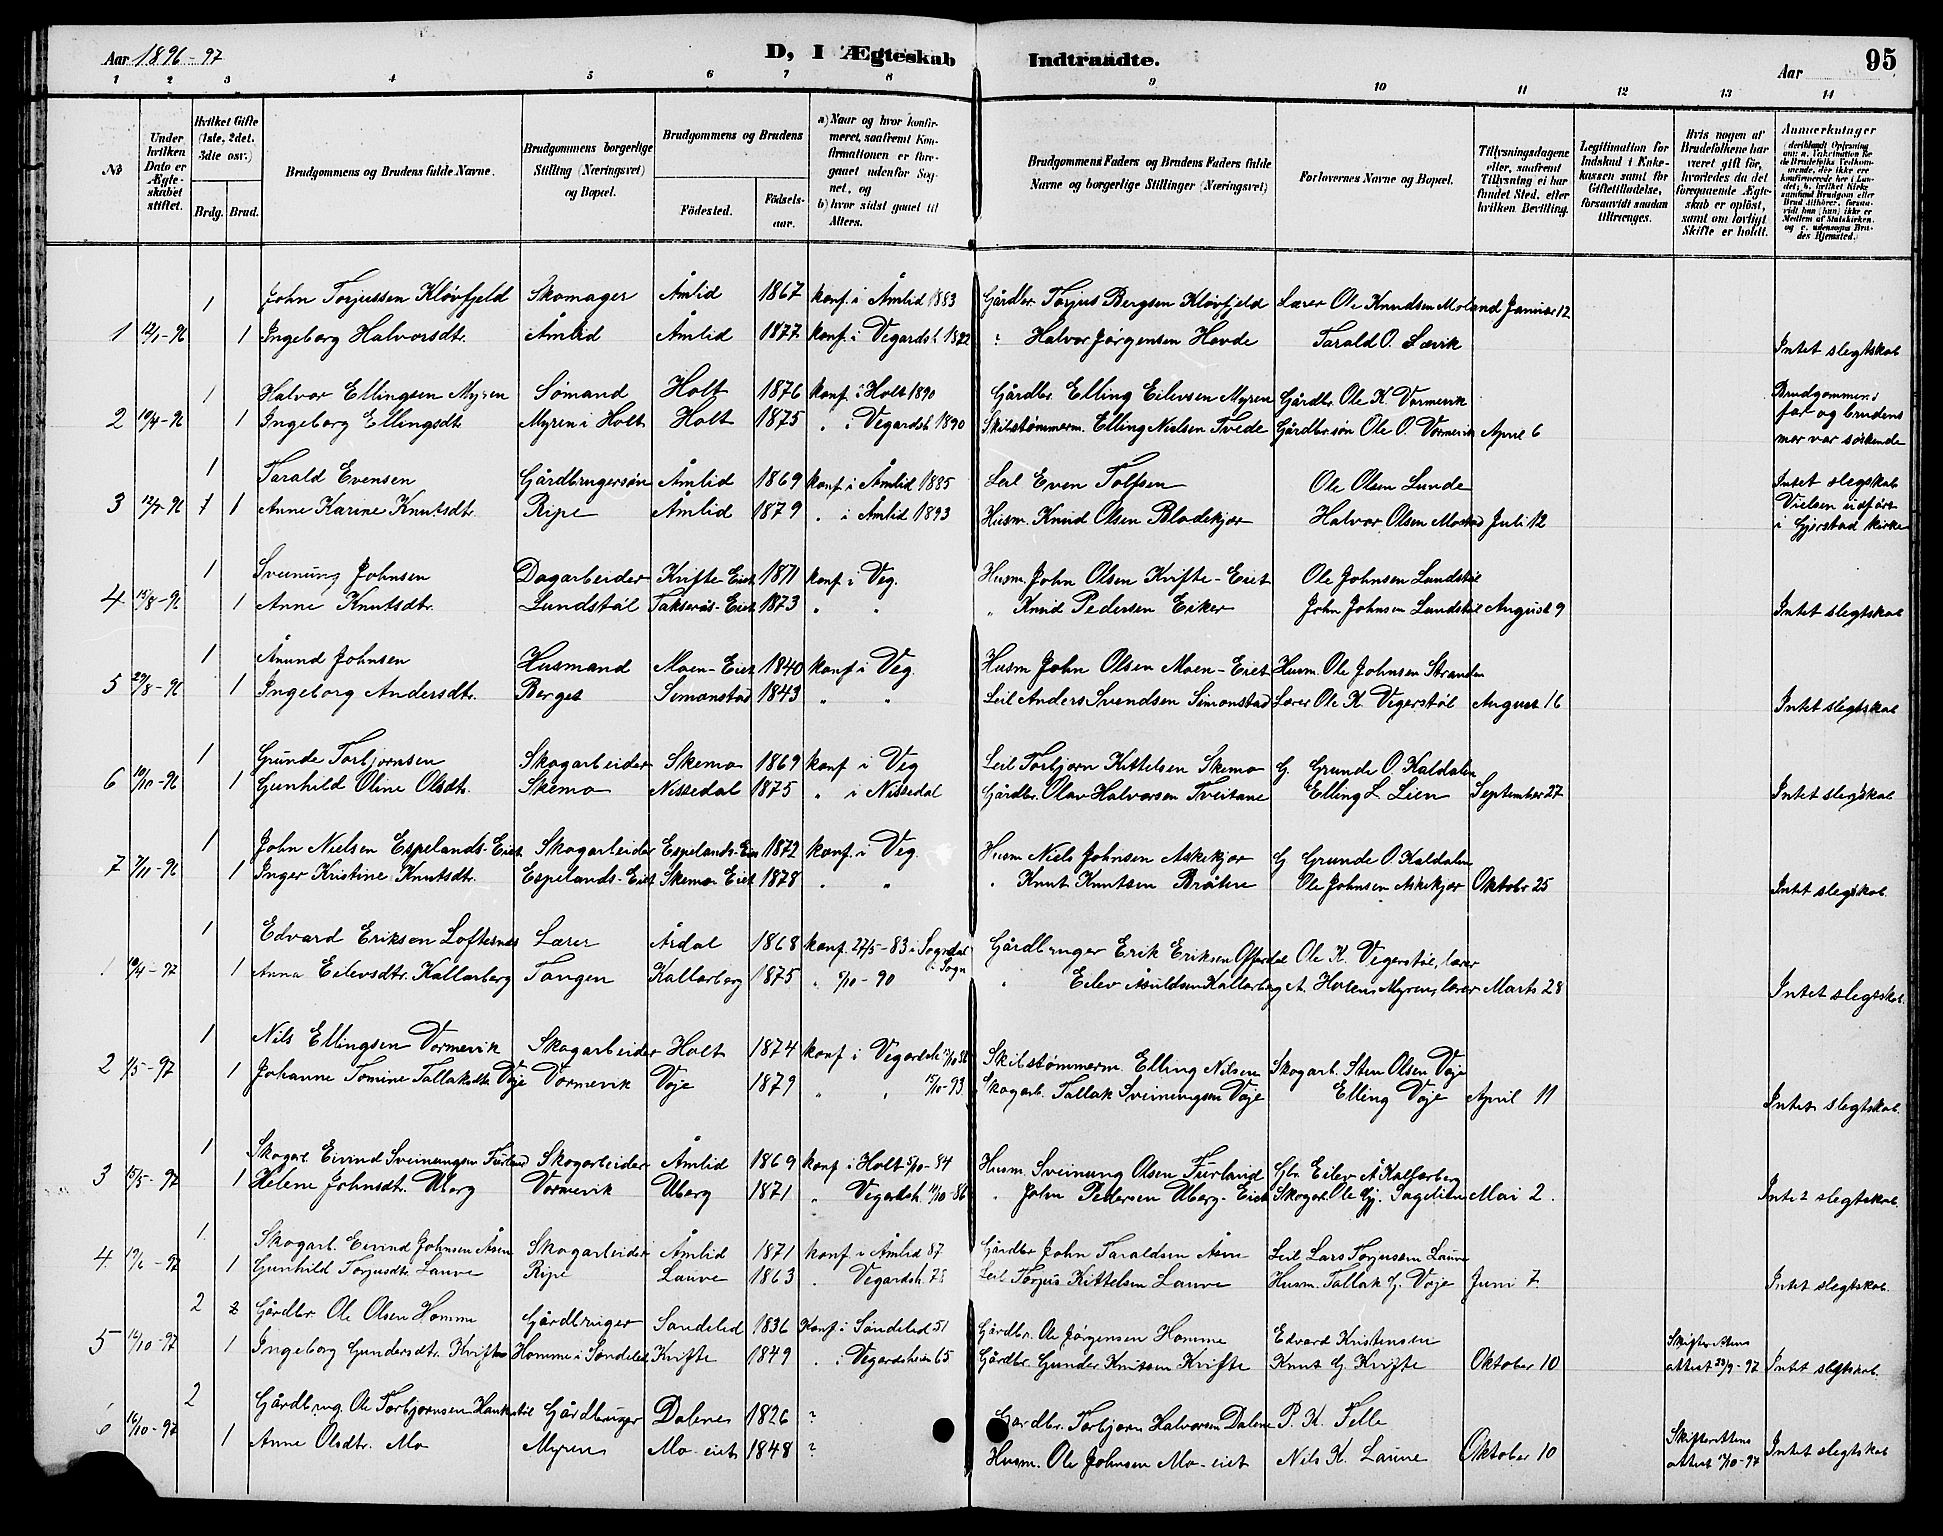 Aar 1896-97
D, I Ægteskab Indtraadte.
Aar
95
1 2 3 4 5 6 7 8 9 10 11 12 13 14
No
Under hvilken Dato er Ægteskabet stiftet.
Hvilket Gifte (1ste, 2det, 3die osv.)
Brdg. Brud.
Brudgommens og Brudens fulde Navne.
Brudgommens borgerlige Stilling (Næringsvei) og Bopæl.
Brudgommens og Brudens
Fødested. Fødselsaar.
a) Naar og hvor konfirmeret, saafremt Konfirmationen er foregaaet udenfor Sognet, og
b) hvor sidst gaaet til Alters.
Brudgommens Faders og Brudens Faders fulde Navne og borgerlige Stillinger (Næringsvei)
Forlovernes Navne og Bopæl.
Tillysningsdagene eller, saafremt Tillysning ei har fundet Sted, efter hvilken Bevilling.
Legitimation for Indskud i Enkekassen samt for Giftetilladelse, forsaavidt saadan tiltrænges.
Hvis nogen af Brudefolkene har været gift før, hvorledes da det foregaaende Ægteskab er opløst, samt om lovligt Skifte er holdt.
Anmerkninger
1 John Torjussen Kløvfjeld Skomager Åmlid 1867 konf. i Åmlid 1883 Gårdbr. Torjus Bergsen Kløvfjeld Lærer Ole Knudsen Morland Januar 12
1 12/1-96 1 Ingeborg Halvorsdtr. Åmlid Åmlid 1877 konf. i Vegardsh. 1892 " Halvor Jørgensen Hovde Tarald O. Løvik Intet slegtskab
1 Halvor Ellingsen Myren Sømand Holt 1876 konf. i Holt 1890 Gårdbr. Elling Eilevsen Myren Gårdbr. Ole K. Vormevik Brudgommens
2 10/4-96 1 Ingeborg Ellingsdt. Myren i Holt Holt 1875 " i Vegardsh. 1890 Skibstømmerm. Elling Nielsen Tvede Gårdbrsøn Ole O. Vormevik April 6 far og brudens mor var søskende
1 Tarald Evensen Gårdbrugersøn Åmlid 1869 konf. i Åmlid 1885 Leil. Even Tolfsen Ole Olsen Lunde Intet slegtskab
3 12/7-96 1 1 Anne Karine Knutsdtr. Ripe Åmlid 1879 " i Åmlid 1893 Husm. Knud Olsen Bladekjær Halvor Olsen Mostad Juli 12 Vielsen udført i Gjerstad kirke
1 Sveinung Johnsen Dagarbeider Kvifte-Eiet 1871 konf. i Veg. Husm. John Olsen Kvifte-Eiet Ole Johnsen Lundstøl
4 15/8-96 1 Anne Knutsdtr. Lundstøl Takserås-Eiet 1873 " " " Knud Pedersen Eiker John Johnsen Lundstøl August 9 Intet slegtskab
1 Åmund Johnsen Husmand Moen-Eiet 1840 konf. i Veg. Husm. John Olsen Moen-Eiet Husm. Ole Johnsen Stranden
5 29/8-96 1 Ingeborg Andersdtr. Berget Simonstad 1843 " " Leil. Anders Svendsen Simonstad Lærer Ole K. Vegerstøl August 16 Intet slegtskab
1 Grunde Torbjørnsen Skogarbeider Skemo 1869 konf i Veg Leil Torbjørn Kittelsen Skemo G. Grunde O. Kaldalen
6 10/10-96 1 Gunhild Oline Olsdtr. Skemo Nissedal 1875 " i Nissedal Gårdbr. Olav Halvorsen Tveitane Elling L. Lien September 27 Intet slegskab
1 John Nielsen Espelands-Eiet Skogarbeider Espelands-Eie 1872 konf. i Veg. Husm Niels Johnsen Askekjær G Grunde O. Kaldalen
7 7/11-96 1 Inger Kristine Knutsdtr. Espelands-Eiet Skemo Eiet 1878 " " " Knut Knutsen Bråten Ole Johnsen Askekjær Oktobr 25 Intet slegskab
1 Edvard Eriksen Loftesnes Lærer Årdal 1868 konf. 27/5-83 i Sogndal i Sogn Gårdbruger Erik Eriksen Offerdal Ole K. Vegerstøl, lærer
1 1 Anna Eilevsdtr. Kallarberg Tangen Kallarberg 1875 " 5/10-90 " Eilev Asuldsen Kallarberg A. Hansen Myren, lærer Marts 28 Intet slegtskab.
1 Nils Ellingsen Vormevik Skogarbeider Holt 1874 konf i Vegardsh. Skibstømmerm. Elling Nilsen Skogarb. Sten Olsen Voje
2 1/5-97 1 Johanne Tomine Tallaksdtr Voje Vormevik Voje 1879 " " 15/10-93 Skogarb. Tallak Sveinungsen Voje Elling Voje April 11 Intet slegtskab.
1 Skogarb Eivind Sveinungsen Furland Skogarbeider Åmlid 1869 konf i Holt 5/10-84 Husm. Sveinung Olsen Furland Gbr. Eilev A Kallarberg
3 15/5-97 1 Helene Johnsdtr. Uberg Vormevik Uberg 1871 " Vegardsh. 10/10-86 " John Pettersen Uberg-Eiet Skogarb. Ole Gj. Sagelien Mai 2. Intet slegtskab.
1 Skogarb. Eivind Johnsen Åsen Skogarbeider Åmlid 1871 konf i Åmlid 87 Gårdbr John Taraldsen Åsen Leil Lars Torjussen Lauve
4. 19/6-97 1 Gunhild Torjusdtr Lauve Ripe Lauve 1863 " Vegardsh. 78 Leil Torjus Kittelsen Lauve Husm. Tallak G. Voje Juni 7. Intet slegtskab.
2 2 Gårdbr Ole Olsen Homme Gårdbruger Søndeled 1836 Konf. i Søndeled 51 Gårdbr. Ole Jørgensen Homme Edvard Kristensen
5 16/10-97 1 Ingeborg Gundersdtr. Kvifte Homme i Søndeled Kvifte 1849 " i Vegardsheien 65 Gårdbr. Gunder Knutsen Kvifte Knut G. Kvifte Oktober 10 Skifterettens attest 30/9-97 Intet slegtskab.
2 Gårdbrug. Ole Torbjørnsen Gårdbruger Dalene 1826 ? Gårdbr. Torbjørn Halvorsen Dalene P. K. Felle
6 16/10-97 1 Anne Olsdtr. Mo Myren Mo-eiet 1848 ? Husm. Ole Johnsen Mo-eiet Nils K. Lauve Oktober 10 Skifterettens attest Intet slegtskab